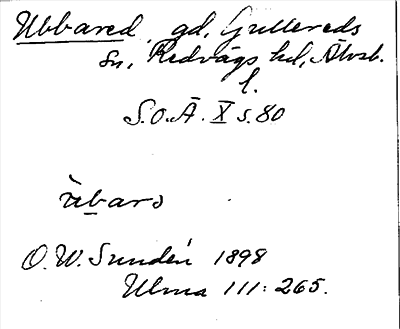 Ubbared, gd, Gullereds
sn, Redvägs hd, Älvsb.
l.
S.O.Ä. X s. 80
ùbarə
O.W. Sundén 1898
Ulma 111: 265.